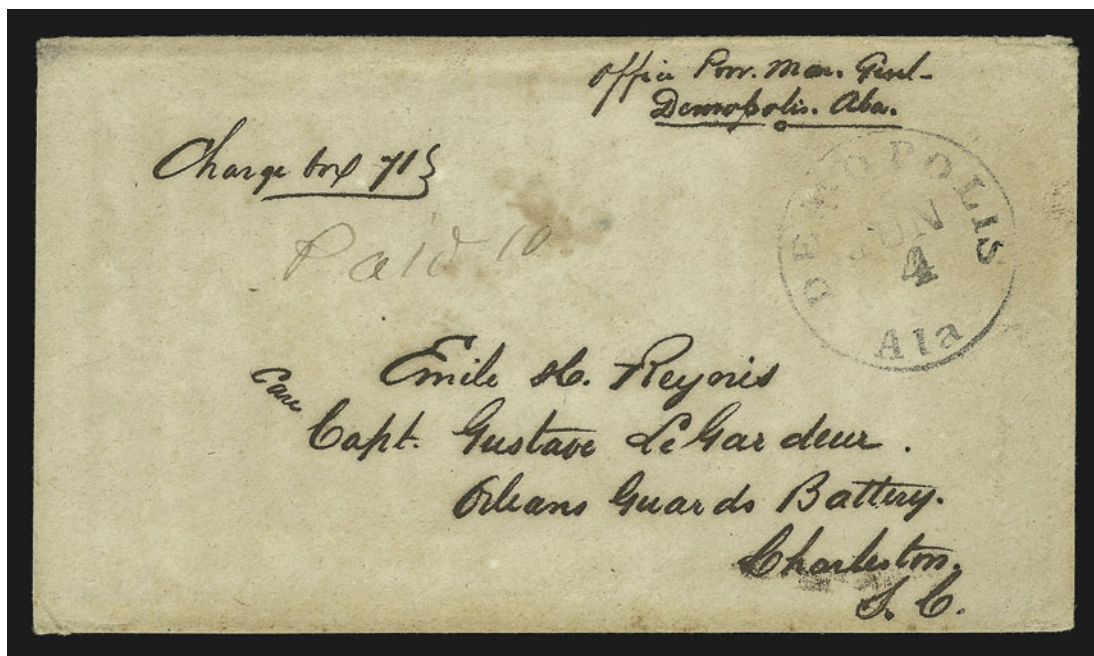 Office Prov. Mar. Genl-
Demopolis. Ala.
Charge box 71
Paid 10
DEMOPOLIS
JUN
4
Ala
Emile H. Reynis
Care
Capt. Gustave LeGardeur.
Orleans Guards Battery.
Charleston.
S. C.